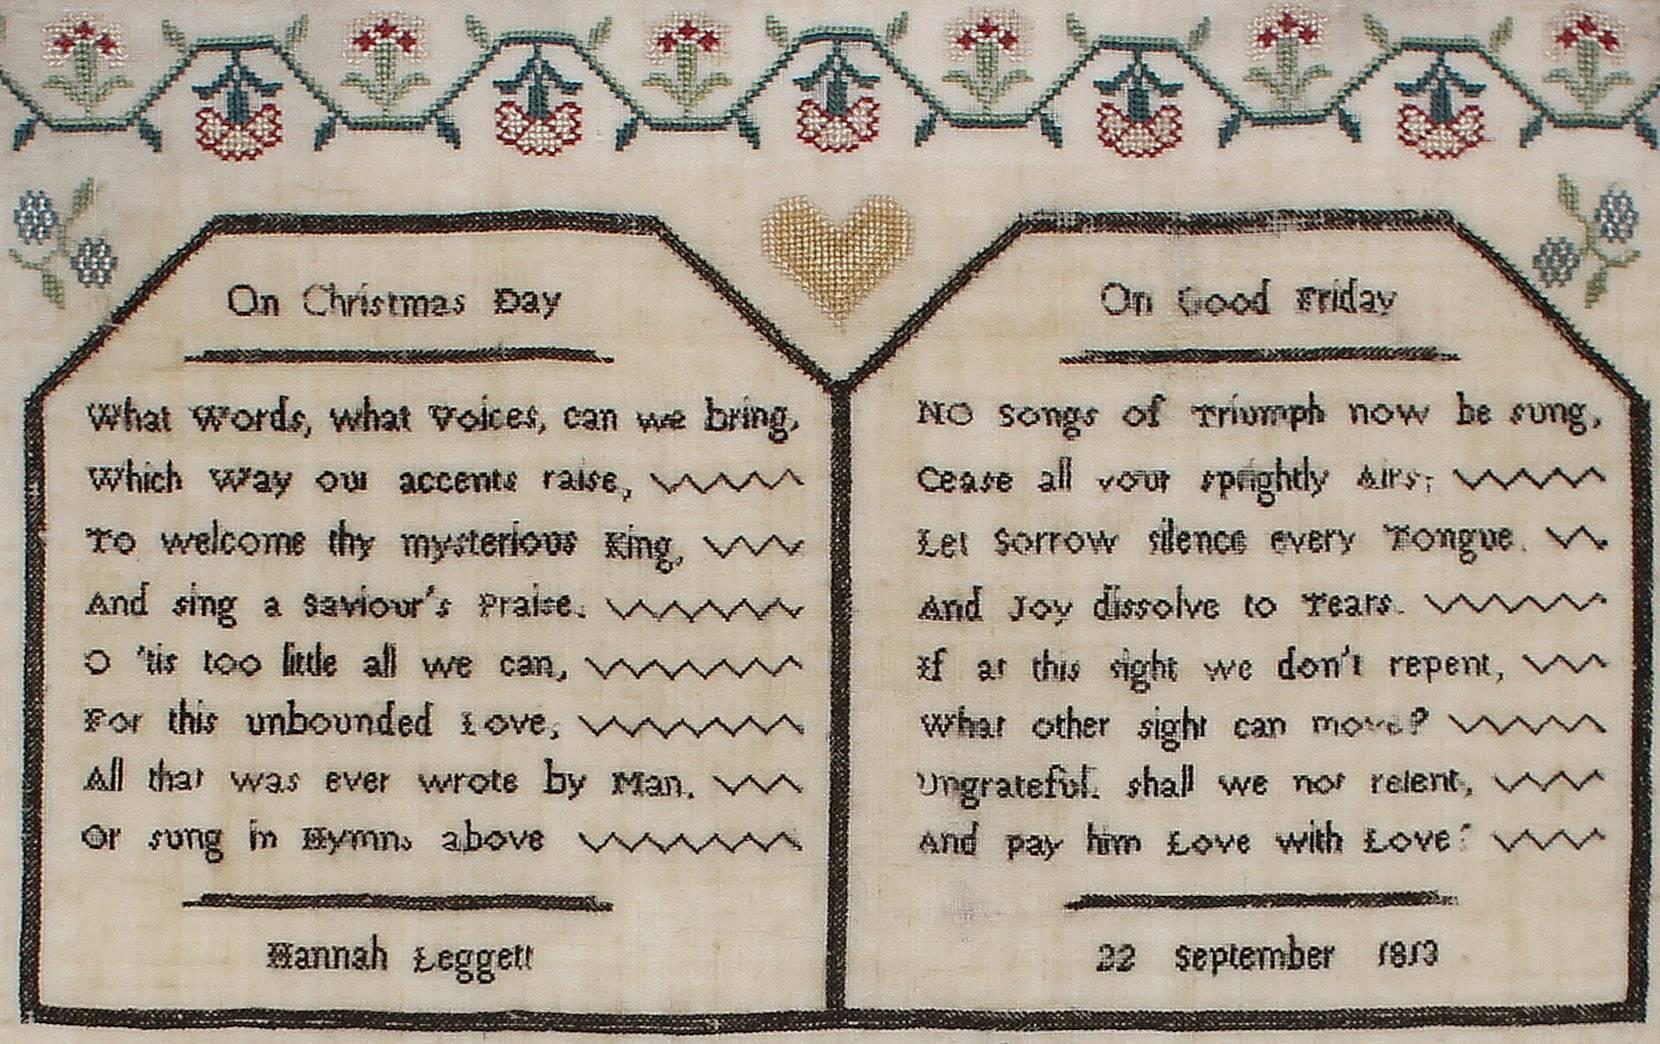 On Christmas Day
What Words, what Voices, can we bring,
Which Way our accents raise,
To welcome thy mysterious King,
And sing a Saviour's Praise.
O 'tis too little all we can,
For this unbounded Love,
All that was ever wrote by Man,
Or sung in Hymns above
Hannah Leggett
On Good Friday
NO Songs of Triumph now be sung,
Cease all your sprightly Airs;
Let Sorrow silence every Tongue,
And Joy dissolve to Tears.
If at this sight we don't repent,
What other sight can move?
Ungrateful. shall we not relent,
And pay him Love with Love!
22 September 1813